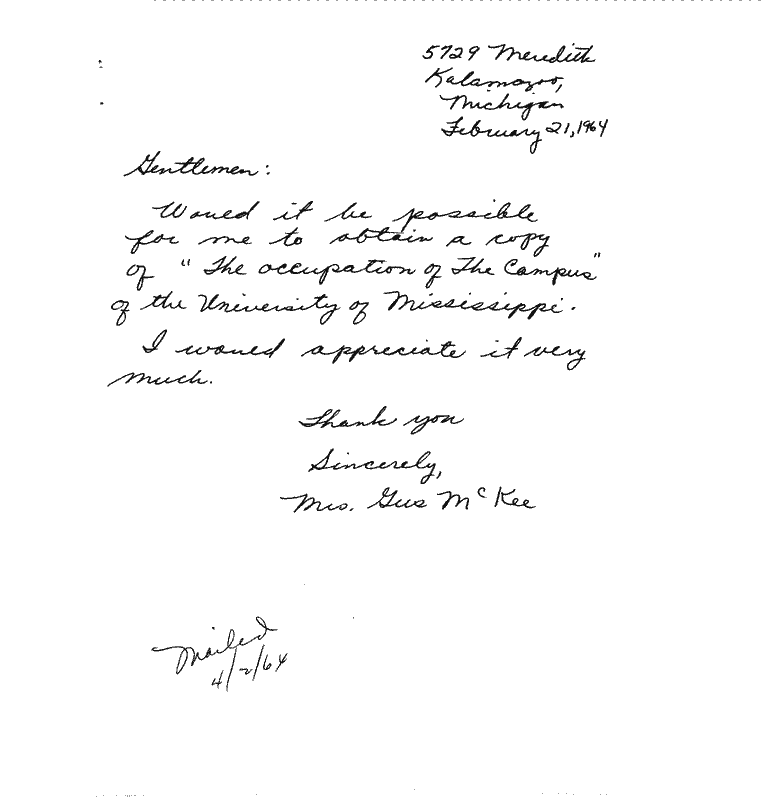 5729 Meredith
Kalamazoo,
Michigan
February 21, 1964
Gentlemen:
Would it be possible
for me to obtain a copy
of "The occupation of The Campus"
of the University of Mississippi.
I would appreciate it very
much.
Thank you
Sincerely,
Mrs. Gus McKee
Mailed
4/2/64